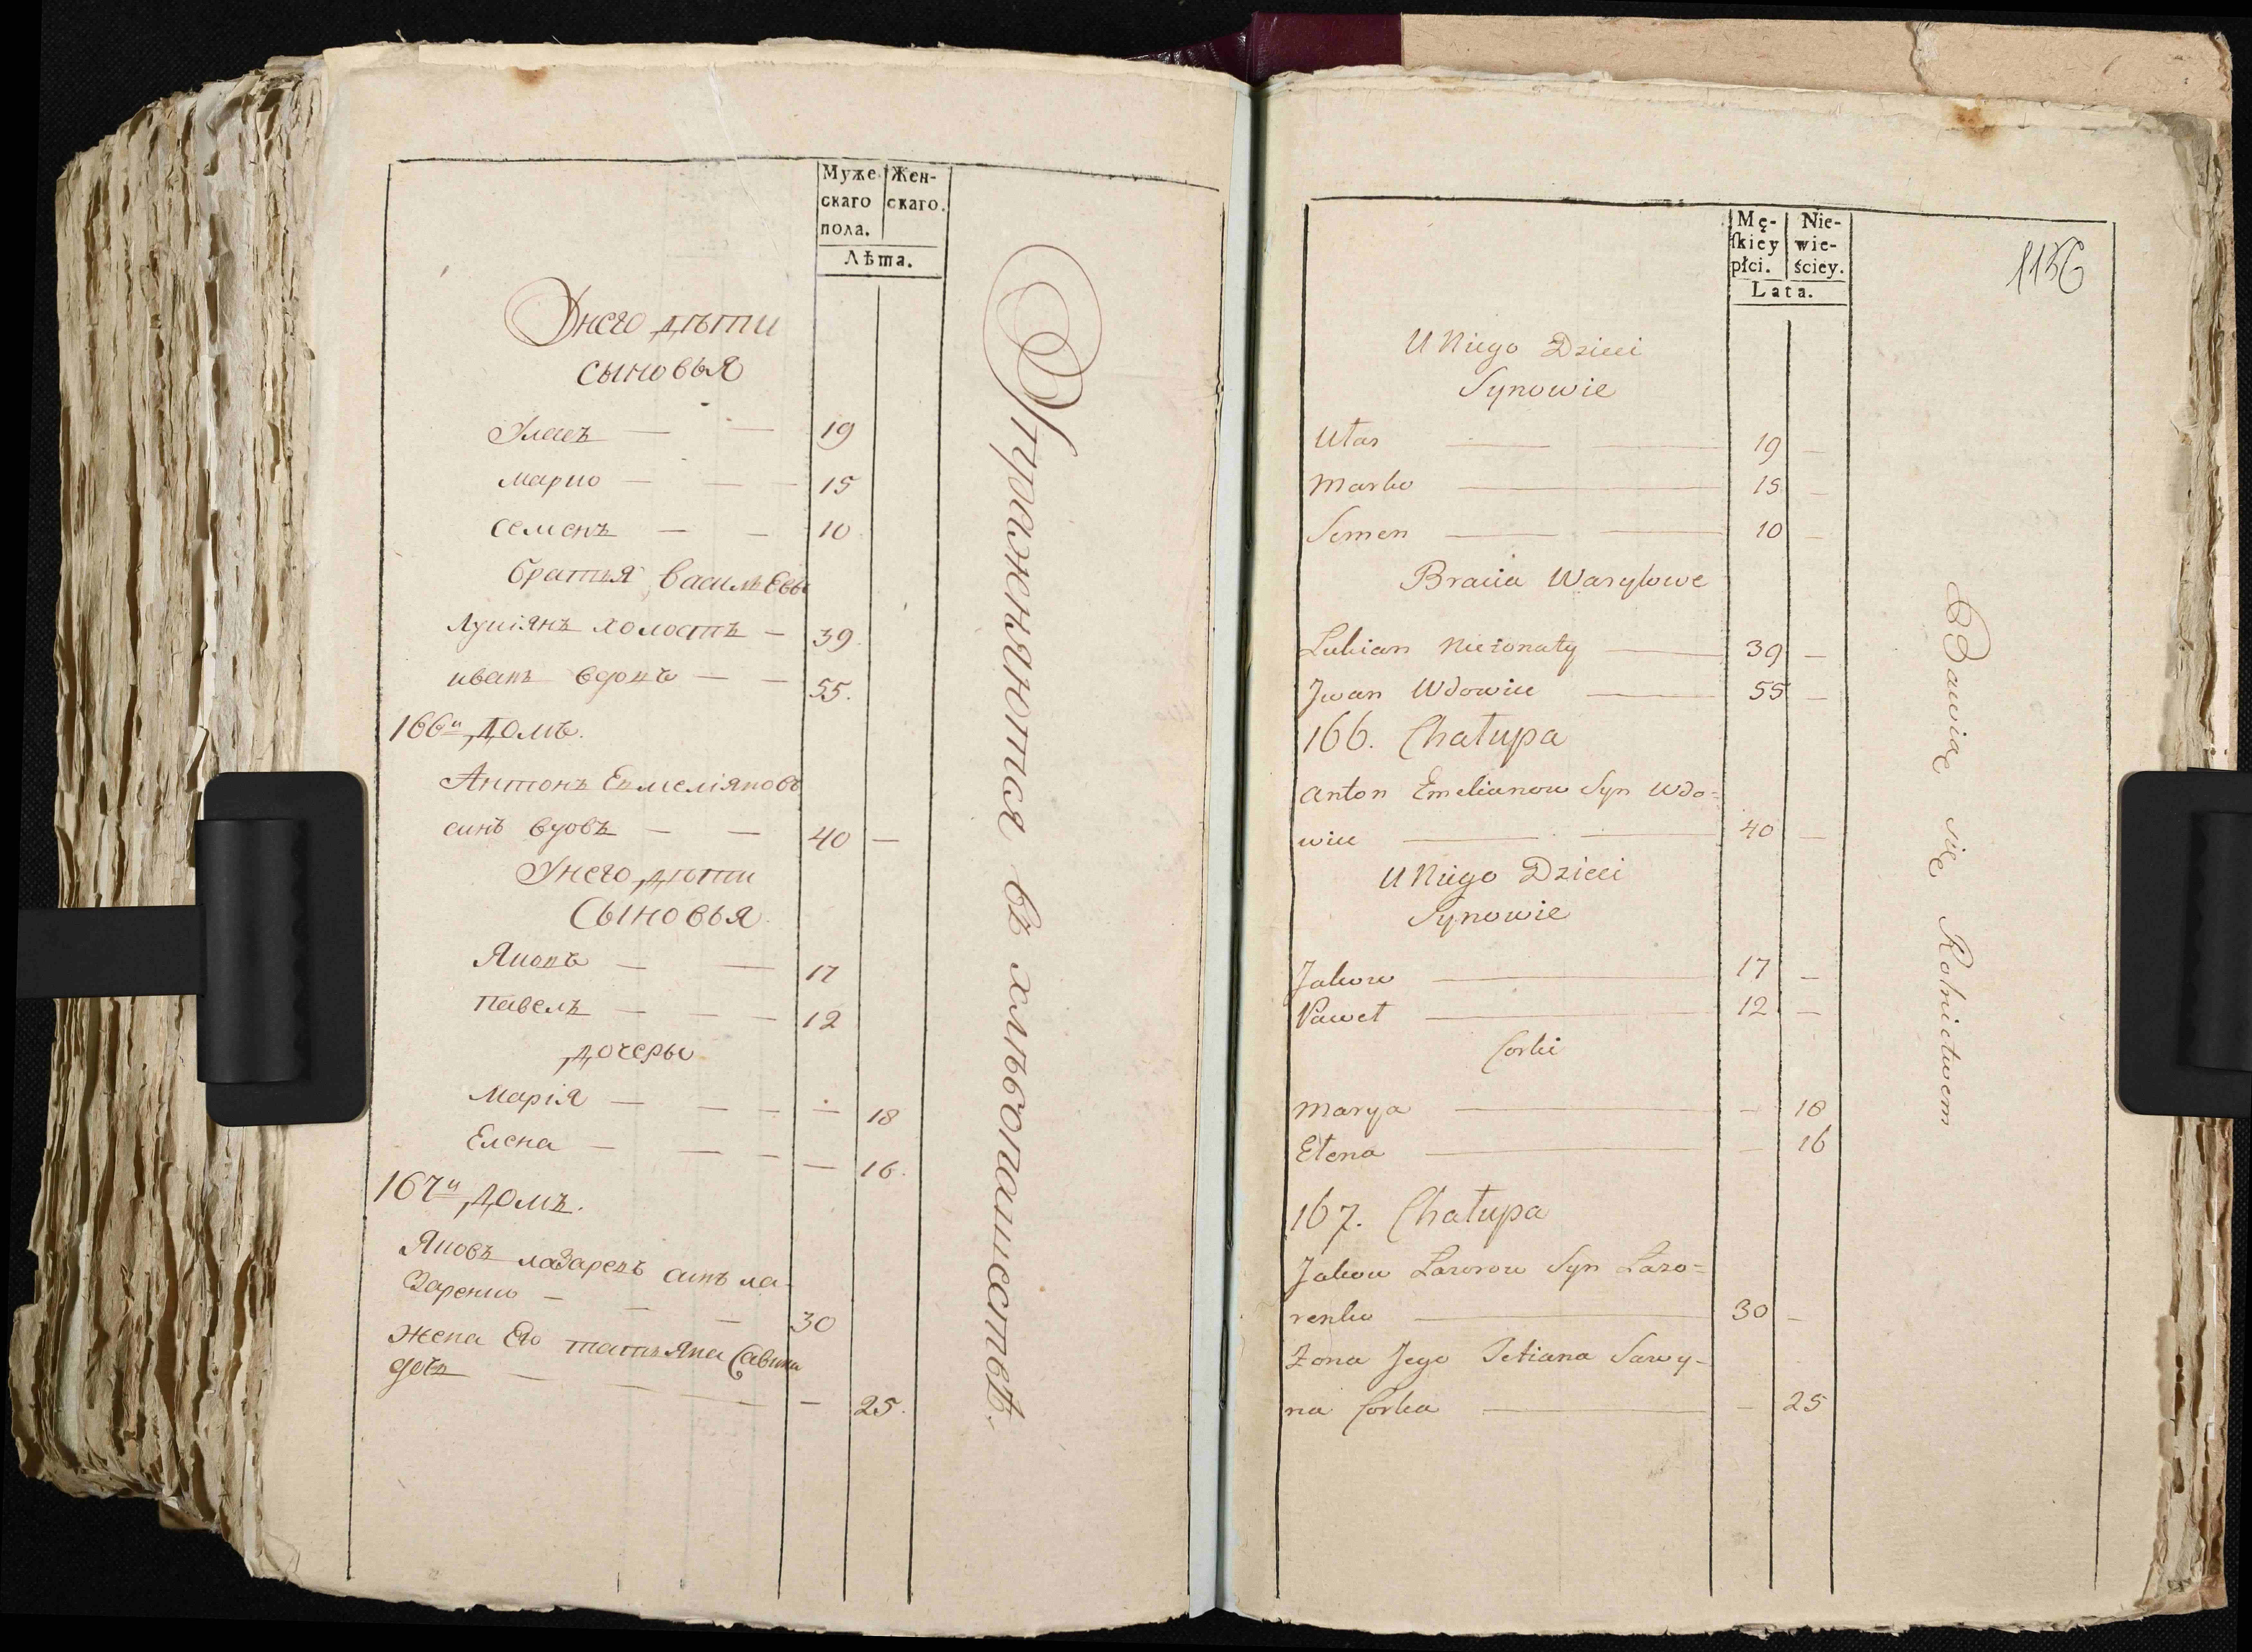 Муже скаго пола.
Жен- скаго.
Лѣта.
Унего дѣти
сыновья
Уласъ — — 19
марко — — — 15
семенъ — — 10
братья васильевы
лукіянъ холостъ — 39.
иванъ вдовъ — — 55.
166й домъ.
Антонъ Емеліяновъ
синъ вдовъ — — 40 —
Унего дѣти
Сыновья
Яковъ — — 17
павелъ — — — 12
дочеры
Марія — — — — 18
Елена — — — — 16.
167й домъ.
Яковъ лазаревъ синъ ла-
заренко — — — 30
жена Его татьяна Савина
дочь — — — — 25.
Упражняются въ хлѣбопашествѣ.
Mę- skiey płci.
Nie- wie- ściey.
Lata.
1136
U Niego Dzieci
Synowie
Ułas — — 19 —
Marko — 15 —
Semen — — 10 —
Bracia Wasylowe
Lukian Nieżonaty — 39 —
Jwan Wdowiec — 55 —
166. Chałupa
Anton Emelianow Syn Wdo=
wiec — — 40 —
U Niego Dzieci
Synowie
Jakow — 17 —
Paweł — 12 —
Corki
Marya — — 18
Ełena — — 16
167. Chałupa
Jakow Lazorow Syn Lazo=
renko — 30 —
Żona Jego Tetiana Sawy-
na Corka — — 25
Bawią się Rolnictwem